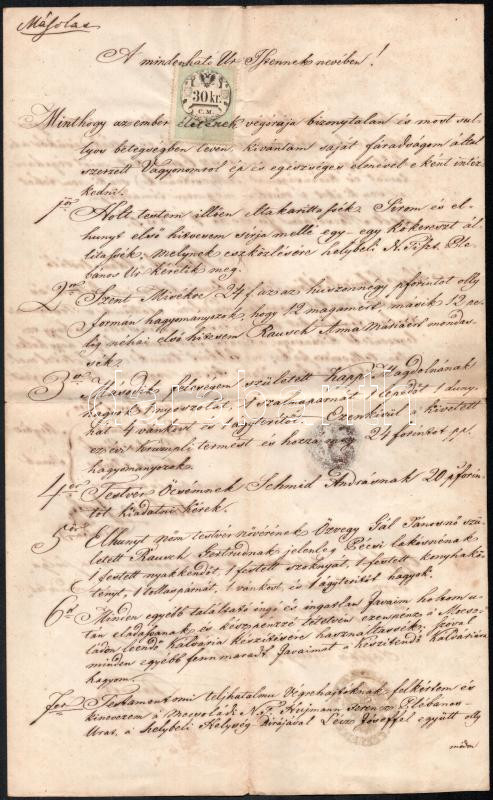 Másolat
A mindenható Úr Istennek nevében!
30 kr.
C.M.
Minthogy az ember életének végórája bizonytalan és most sul-
lyos betegségben léven, kivántam saját fáradságom által
szerzett Vagyonomrol ép és egészséges elmével e ként intéz-
kedni.
1ör Holt testem illően eltakarittassék. Sirom és el-
hunyt első hitvesem sirja mellé egy-egy kőkereszt ál-
littassék, melynek eszközlésére helybeli Ple-
banos Ur kéretik meg.
2or Szent Misékre 24 f az az huszonnégy pforintot olly
formán hagyományozok, hogy 12 magamért, másik 12 pe-
dig néhai első hitvesem Rausch Anna Máriáért mondas-
sék.
3or Második feleségem született Kapp Magdolnának
hagyok 1 nyoszolát, 1 szalmapárnát, 1 lepedőt 1 duny-
hát 4 vánkost és 1 ágyteritőt. Ezenkivűl követett
ez évi krumpli termést és hozzá még 24 forintot pp.
hagyományozok.
4er Testvér Öcsémnek Schmid Andrásnak 20 pforin-
tot kiadatni kérek.
5ör Elhunyt Nőm testvér nővérének Özvegy Gál Jánosnő szü-
letett Rausch Gertrudnak jelenleg Pécsi lakosnénak
1 festett nyakkendőt, 1 festett szoknyát, 1 festett konyhakö-
tényt, 1 tollaspárnát, 1 vánkost, és 1 ágyteritőt hagyok.
6or Minden egyébb található ingó és ingatlan Javaim holtom u-
tán eladassanak és készpénzzé tétetvén ezen pénz a Mocso-
ládon leendő kalvaria készitésére használtassék; szóval
minden egyebb fenn maradt Javaimat a készitendő kalváriára
hagyom.
7er Testamentomi teljhatalmu Végrehajtóknak felkértem és
kinevezem a Mocsoládi N. T. Hejmann Ferencz Plébános-
Urat, a helybeli Helység-Birájával József együtt olly
móden